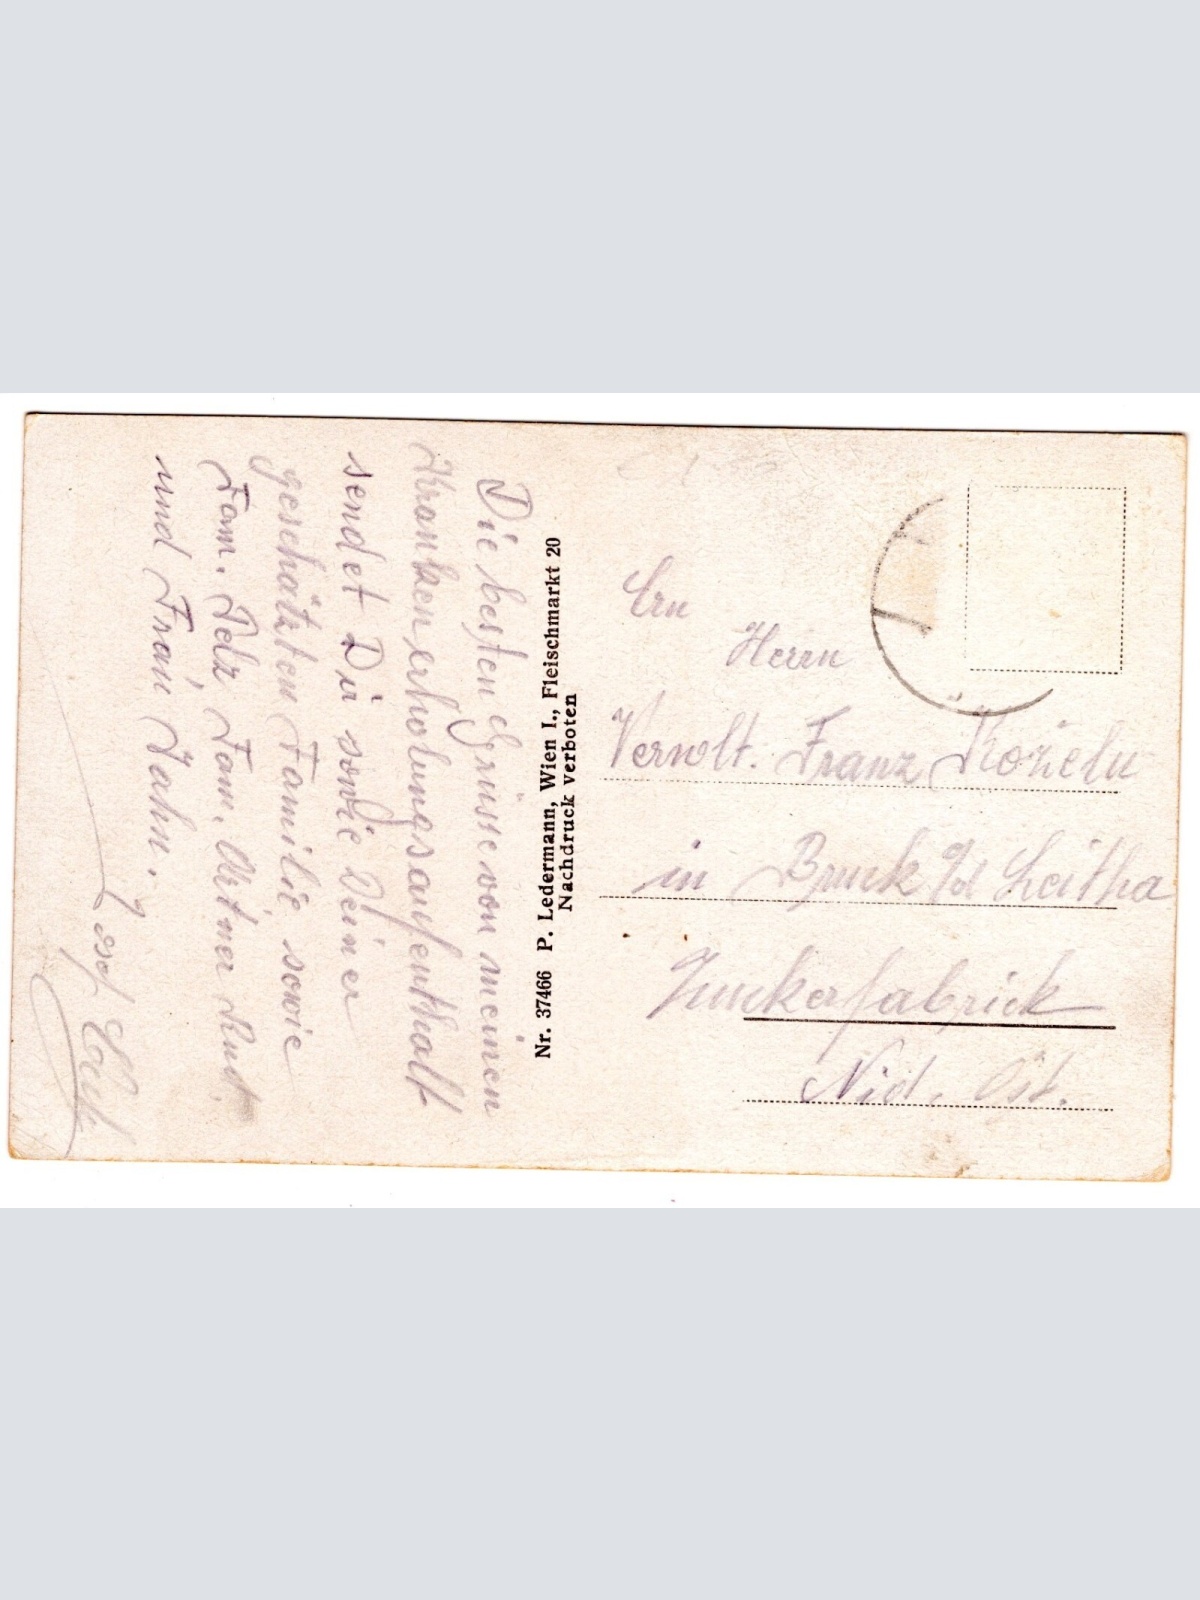 Die besten Grüsse von meinen
Krankenerholungsaufenthalt
sendet Dir sowie Deiner
geschätzten Familie sowie
Fam. Pelz, Fam. Ortner
und Frau Jahn.
Josef
Nr. 37466 P. Ledermann, Wien I., Fleischmarkt 20
Nachdruck verboten
An
Herrn
Verwlt. Franz
in Bruck a/d Leitha
Zuckerfabrick
Nid. Öst.